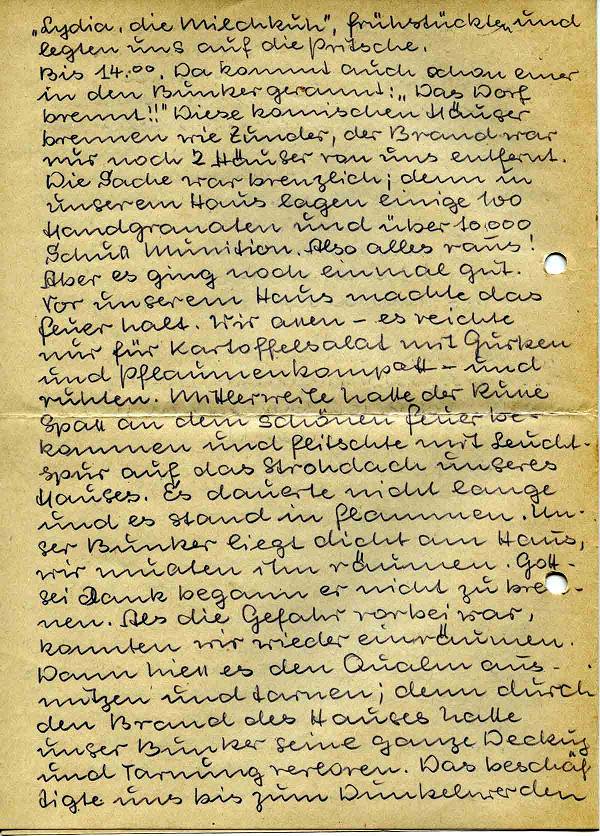 „Lydia, die Milchkuh", frühstückten und
legten uns auf die Pritsche.
Bis 14.00. Da kommt auch schon einer
in den Bunker gerannt: „Das Dorf
brennt!!" Diese komischen Häuser
brennen wie Zunder, der Brand war
nur noch 2 Häuser von uns entfernt.
Die Sache war brenzlich; denn in
unserem Haus lagen einige 100
Handgranaten und über 10.000
Schuß Munition. Also alles raus!
Aber es ging noch einmal gut.
Vor unserem Haus machte das
Feuer halt. Wir aßen – es reichte
nur für Kartoffelsalat mit Gurken
und Pflaumenkompott – und
ruhten. Mittlerweile hatte der Ruße
Spaß an dem schönen Feuer be-
kommen und flitschte mit Leucht-
spur auf das Strohdach unseres
Hauses. Es dauerte nicht lange
und es stand in Flammen. Un-
ser Bunker liegt dicht am Haus,
wir mußten ihn räumen. Gott-
sei dank begann er nicht zu bren-
nen. Als die Gefahr vorbei war,
konnten wir wieder einräumen.
Dann hieß es den Qualm aus-
nutzen und tarnen; denn durch
den Brand des Hauses hatte
unser Bunker seine ganze Deckung
und Tarnung verloren. Das beschäf
tigte uns bis zum Dunkelwerden